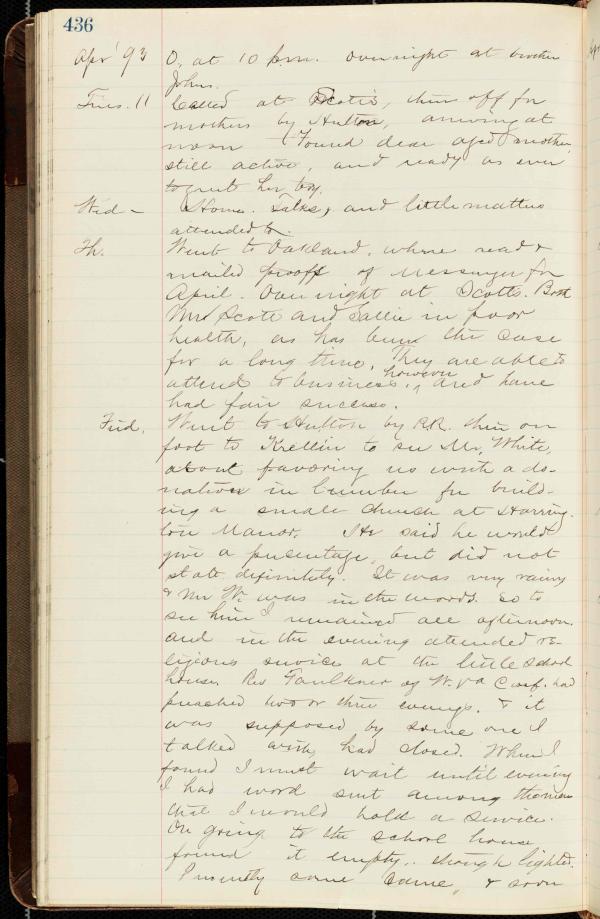 436
Apr '93 O, at 10 p.m. over night at brother
Johns.
Tues. 11 Called at Scotts, then off for
mothers by Hutton, arriving at
noon. Found dear aged mother
still active, and ready as ever
to greet her boy.
Wed - Home. Talks, and little matters
attended to.
Th. Went to Oakland, where read &
mailed proofs of Messenger for
April. Over night at Scotts. Both
Mrs Scott and Sallie in poor
health, as has been the case
for a long time. They are able to
attend to business, however, and have
had fair success.
Frid. Went to Hutton by R.R. then on
foot to Kretlin to see Mr. White,
about favoring us with a do-
nation in lumber for build-
ing a small church at Harring-
ton Manor. He said he would
give a percentage, but did not
state definitely. It was very rainy
& Mr W. was in the woods. So to
see him I remained all afternoon
and in the evening attended re-
ligious service at the little school
house. Rev Faulkner of W. Va Conf. had
preached two or three evenings. & it
was supposed by some one I
talked with, had closed. When I
found I must wait until evening
I had word sent among the men
that I would hold a service.
On going to the school house
found it empty, though lighted.
Presently some came, & soon